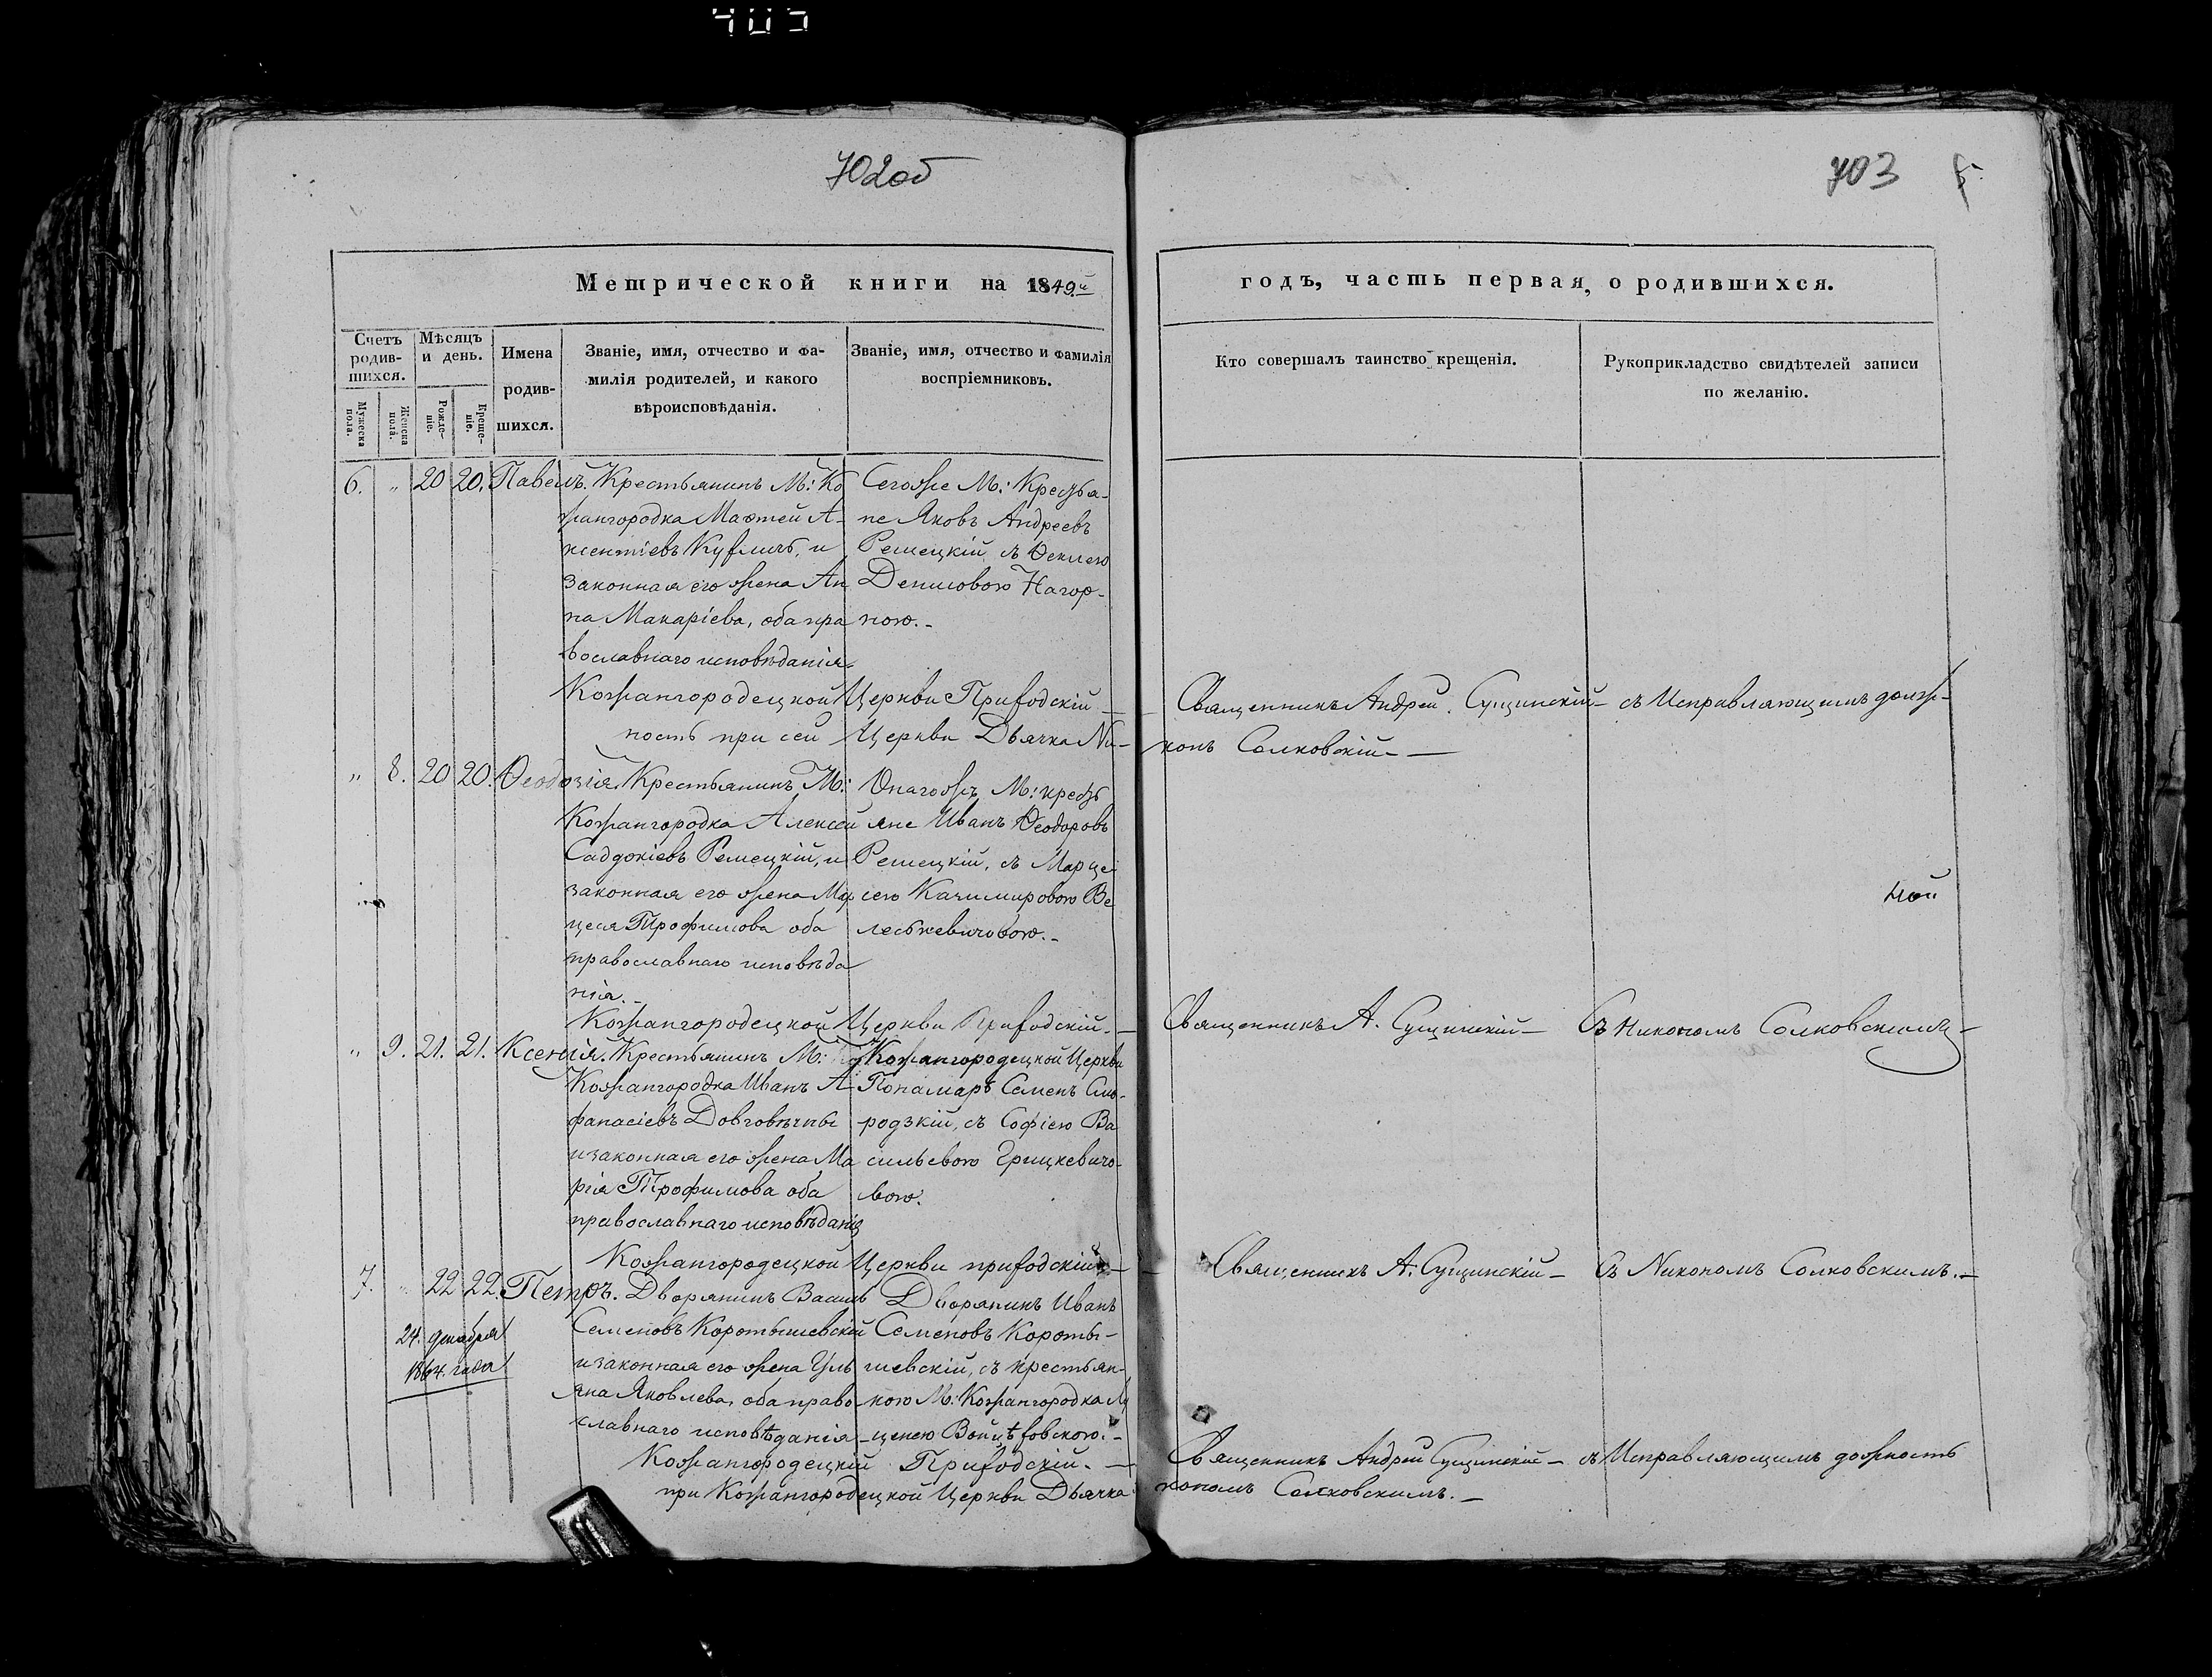 702об
703
Метрической книги на 1849й
годъ, часть первая, о родившихся.
Счетъ родив-шихся.
Мѣсяцъ и день.
Мужеска пола.
Женска пола.
Рожде-ніе.
Креще-ніе.
Имена родив-шихся.
Званіе, имя, отчество и фа-
милія родителей, и какого
вѣроисповѣданія.
Званіе, имя, отчество и фамилія
воспріемниковъ.
Кто совершалъ таинство крещенія.
Рукоприкладство свидѣтелей записи
по желанію.
6. „ 20 20. Павелъ. Крестьянинъ М: Ко
жангородка Матѳей А-
ксентіевъ и
законная его жена Ан
на Макаріева, оба пра
вославнаго исповѣданія.
Сегоже М: Крестья-
не Яковъ Андреевъ
Ремецкій съ Ѳеклею
Денисовою Нагор-
ною.-
Кожангородецкой Церкви Приходскій — Священникъ Андрей Сущинскій — съ Исправляющимъ долж-
ность при сей Церкви Дьячка Ни- конъ Солковскій —
„ 8. 20 20. Ѳеодозія. Крестьянинъ М:
Кожангородка Алексей
Саддокіевъ Ремецкій, и
законная его жена Мар
цеся Трофимова оба
православнаго исповѣда
нія.-
Онагожъ М: крест
яне Иванъ Ѳеодоровъ
Ремецкій, съ Марце
сею Казимировою Ве
леськевичовою.-
Кожангородецкой Церкви Приходскій — Священникъ А. Сущинскій — Съ Никономъ Солковскимъ —
„ 9. 21. 21. Ксенія. Крестьянинъ М:
Кожангородка Иванъ А
фанасіевъ Довговѣчны
и законная его жена Ма
рія Трофимова оба
православнаго исповѣданія
Кожангородецкой Церкви
Понамаръ Семенъ Смо-
родзкій, съ Софіею Ва
сильевою Грицкевичо-
вою.
Кожангородецкой Церкви приходскій — Священникъ А. Сущинскій — Съ Никономъ Солковскимъ. —
7. „ 22 22. Петръ. Дворянинъ Василь
Семеновъ Коротышевскій
и законная его жена Уль
яна Яковлева, оба право
славнаго исповѣданія
24. декабря
1864. года
Дворянинъ Иванъ
Семеновъ Короты-
шевскій, съ крестьян-
кою М: Кожангородка Лу
цеею Войтѣховскою.-
Кожангородецкій Приходскій. — Священникъ Андрей Сущинскій — съ Исправляющимъ должность
при Кожангородецкой Церкви Дьячка кономъ Солковскимъ. —